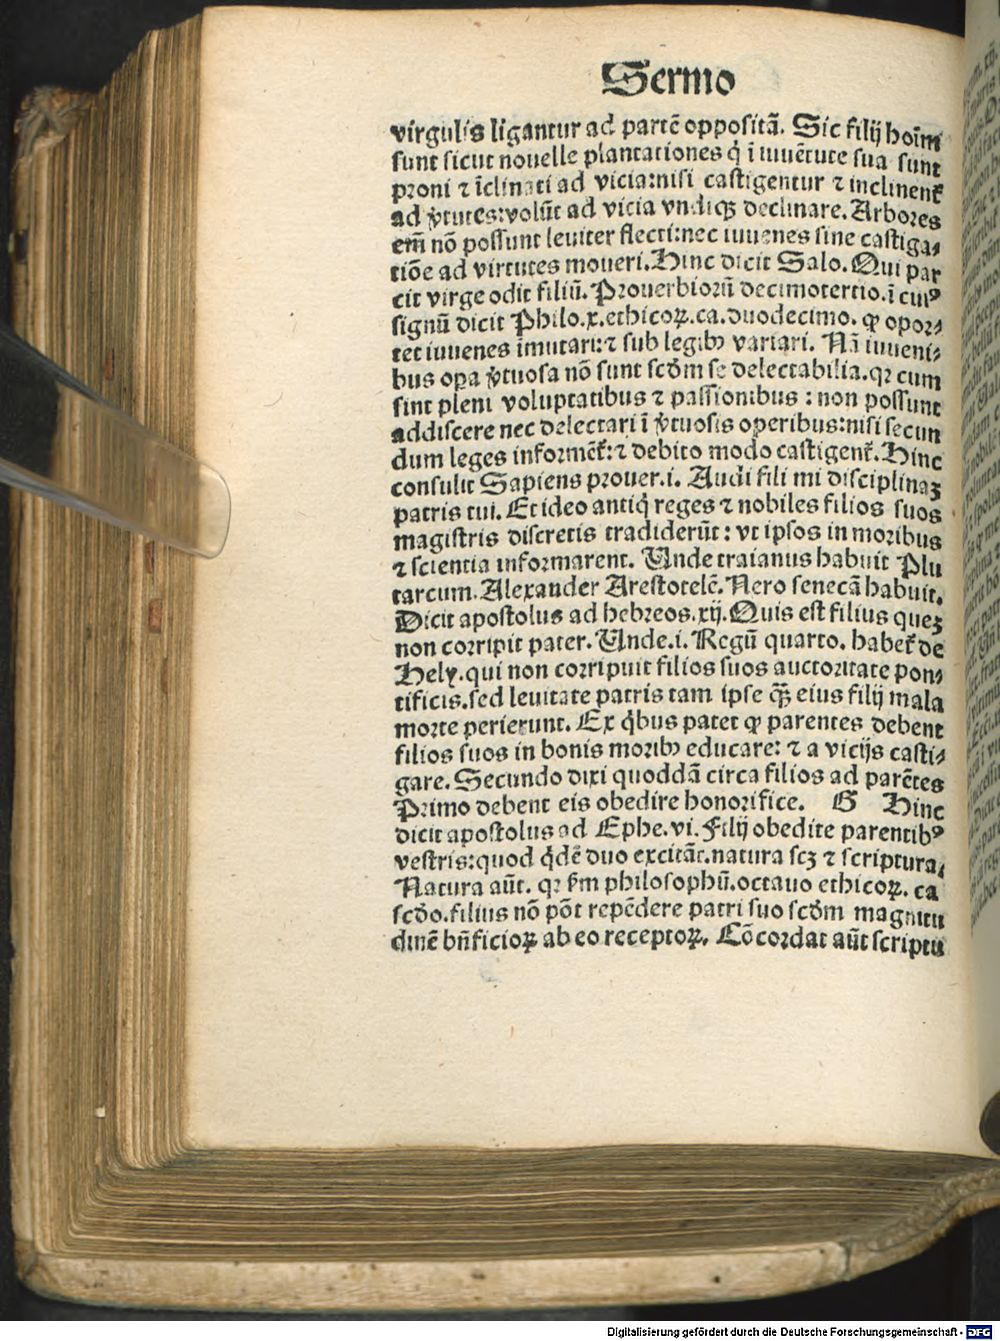 Sermo
virgulis ligantur ad partē oppositā. Sic filij hoīm
sunt sicut nouelle plantationes q̇ ī iuuētute sua sunt
proni ⁊ īclinati ad vicia:nisi castigentur ⁊ inclinent᷑
ad v̓tutes:volūt ad vicia vndiqꝫ declinare. Arbores
em̄ nō possunt leuiter flecti:nec iuuenes sine castiga⸗
tiōe ad virtutes moueri. Hinc dicit Salo. Qui par
cit virge odit filiū. Prouerbiorū decimotertio. ī cuiꝰ
signū dicit Philo.x.ethicoꝝ.ca.duodecimo. ꝙ opor⸗
tet iuuenes īmutari:⁊ sub legibꝰ variari. Nā iuueni⸗
bus oꝑa v̓tuosa nō sunt scd̄m se delectabilia.qꝛ cum
sint pleni voluptatibus ⁊ passionibus : non possunt
addiscere nec delectari ī v̓tuosis operibus:nisi secun
dum leges informēt᷑:⁊ debito modo castigent᷑. Hinc
consulit Sapiens prouer.i. Audi fili mi disciplinaꝫ
patris tui. Et ideo antiq̇ reges ⁊ nobiles filios suos
magistris discretis tradiderūt : vt ipsos in moribus
⁊ scientia informarent. Unde traianus habuit Plu
tarcum. Alexander Arestotelē. Nero senecā habuit.
Dicit apostolus ad hebreos.xij. Quis est filius queꝫ
non corripit pater. Unde.i. Regū quarto. habet᷑ de
Hely.qui non corripuit filios suos auctoritate pon⸗
tificis.sed leuitate patris tam ipse qꝫ̄ eius filij mala
morte perierunt. Ex q̇bus patet ꝙ parentes debent
filios suos in bonis moribꝰ educare: ⁊ a vicijs casti⸗
gare. Secundo dixi quoddā circa filios ad parētes
Primo debent eis obedire honorifice. G Hinc
dicit apostolus ad Ephe.vi. Filij obedite parentibꝰ
vestris:quod q̇dē duo excitāt.natura scꝫ ⁊ scriptura.
Natura aūt. qꝛ fm̄ philosophū.octauo ethicoꝝ. ca
scd̄o.filius nō pōt repēdere patri suo scd̄m magnitu
dinē bn̄ficioꝝ ab eo receptoꝝ. Cōcordat aūt scriptu
Digitalisierung gefördert durch die Deutsche Forschungsgemeinschaft - DFG